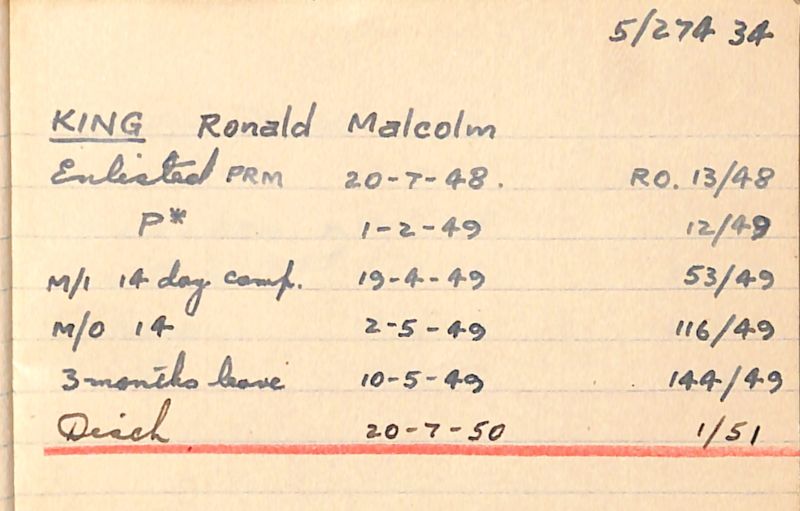 5/274 34
KING Ronald Malcolm
Enlisted PRM 20-7-48. RO. 13/48
P* 1-2-49 12/49
M/1 14 day camp. 19-4-49 53/49
M/O 14 2-5-49 116/49
3 months leave 10-5-49 144/49
Disch 20-7-50 1/51